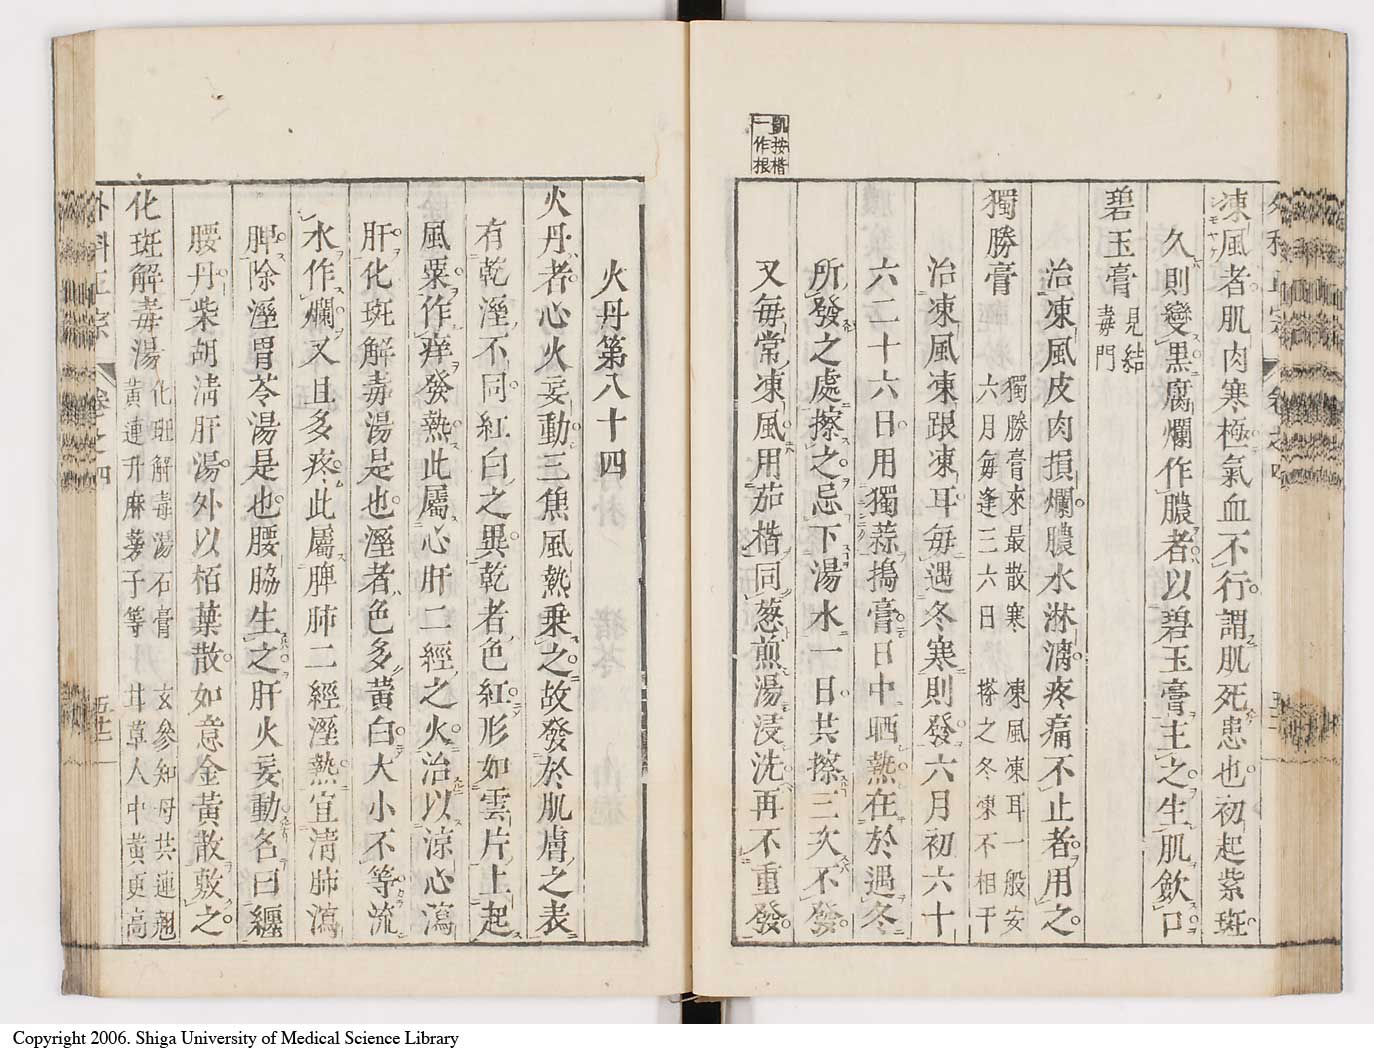 凍風者肌肉寒極氣血不行謂肌死患也初起紫斑
久則變黑腐爛作膿者以碧玉膏主之生肌斂口
碧玉膏 見結毒門
治凍風皮肉損爛膿水淋漓疼痛不止者用之
獨勝膏 獨勝膏來最散寒 凍風凍耳一般安
六月每逢三六日 搽之冬凍不相干
治凍風凍跟凍耳每遇冬寒則發六月初六十
六二十六日用獨蒜搗膏日中晒熱在於遇冬
所發之處擦之忌下湯水一日共擦三次不發
又每常凍風用茄楷同葱煎湯浸洗再不重發
凱按楷
一作根
外科正宗 卷之四
火丹第八十四
火丹者心火妄動三焦風熱乗之故發於肌膚之表
有乾溼不同紅白之異乾者色紅形如雲片上起
風粟作痒發熱此屬心肝二經之火治以涼心瀉
肝化斑解毒湯是也溼者色多黃白大小不等流
水作爛又且多疼此屬脾肺二經溼熱宜清肺瀉
脾除溼胃苓湯是也腰脇生之肝火妄動名曰纏
腰丹柴胡清肝湯外以栢葉散如意金黃散敷之
化斑解毒湯 化斑解毒湯石膏 玄參知母共連翹
黃連升麻蒡子等 甘草人中黃更高
外科正宗 卷之四
Copyright 2006. Shiga University of Medical Science Library